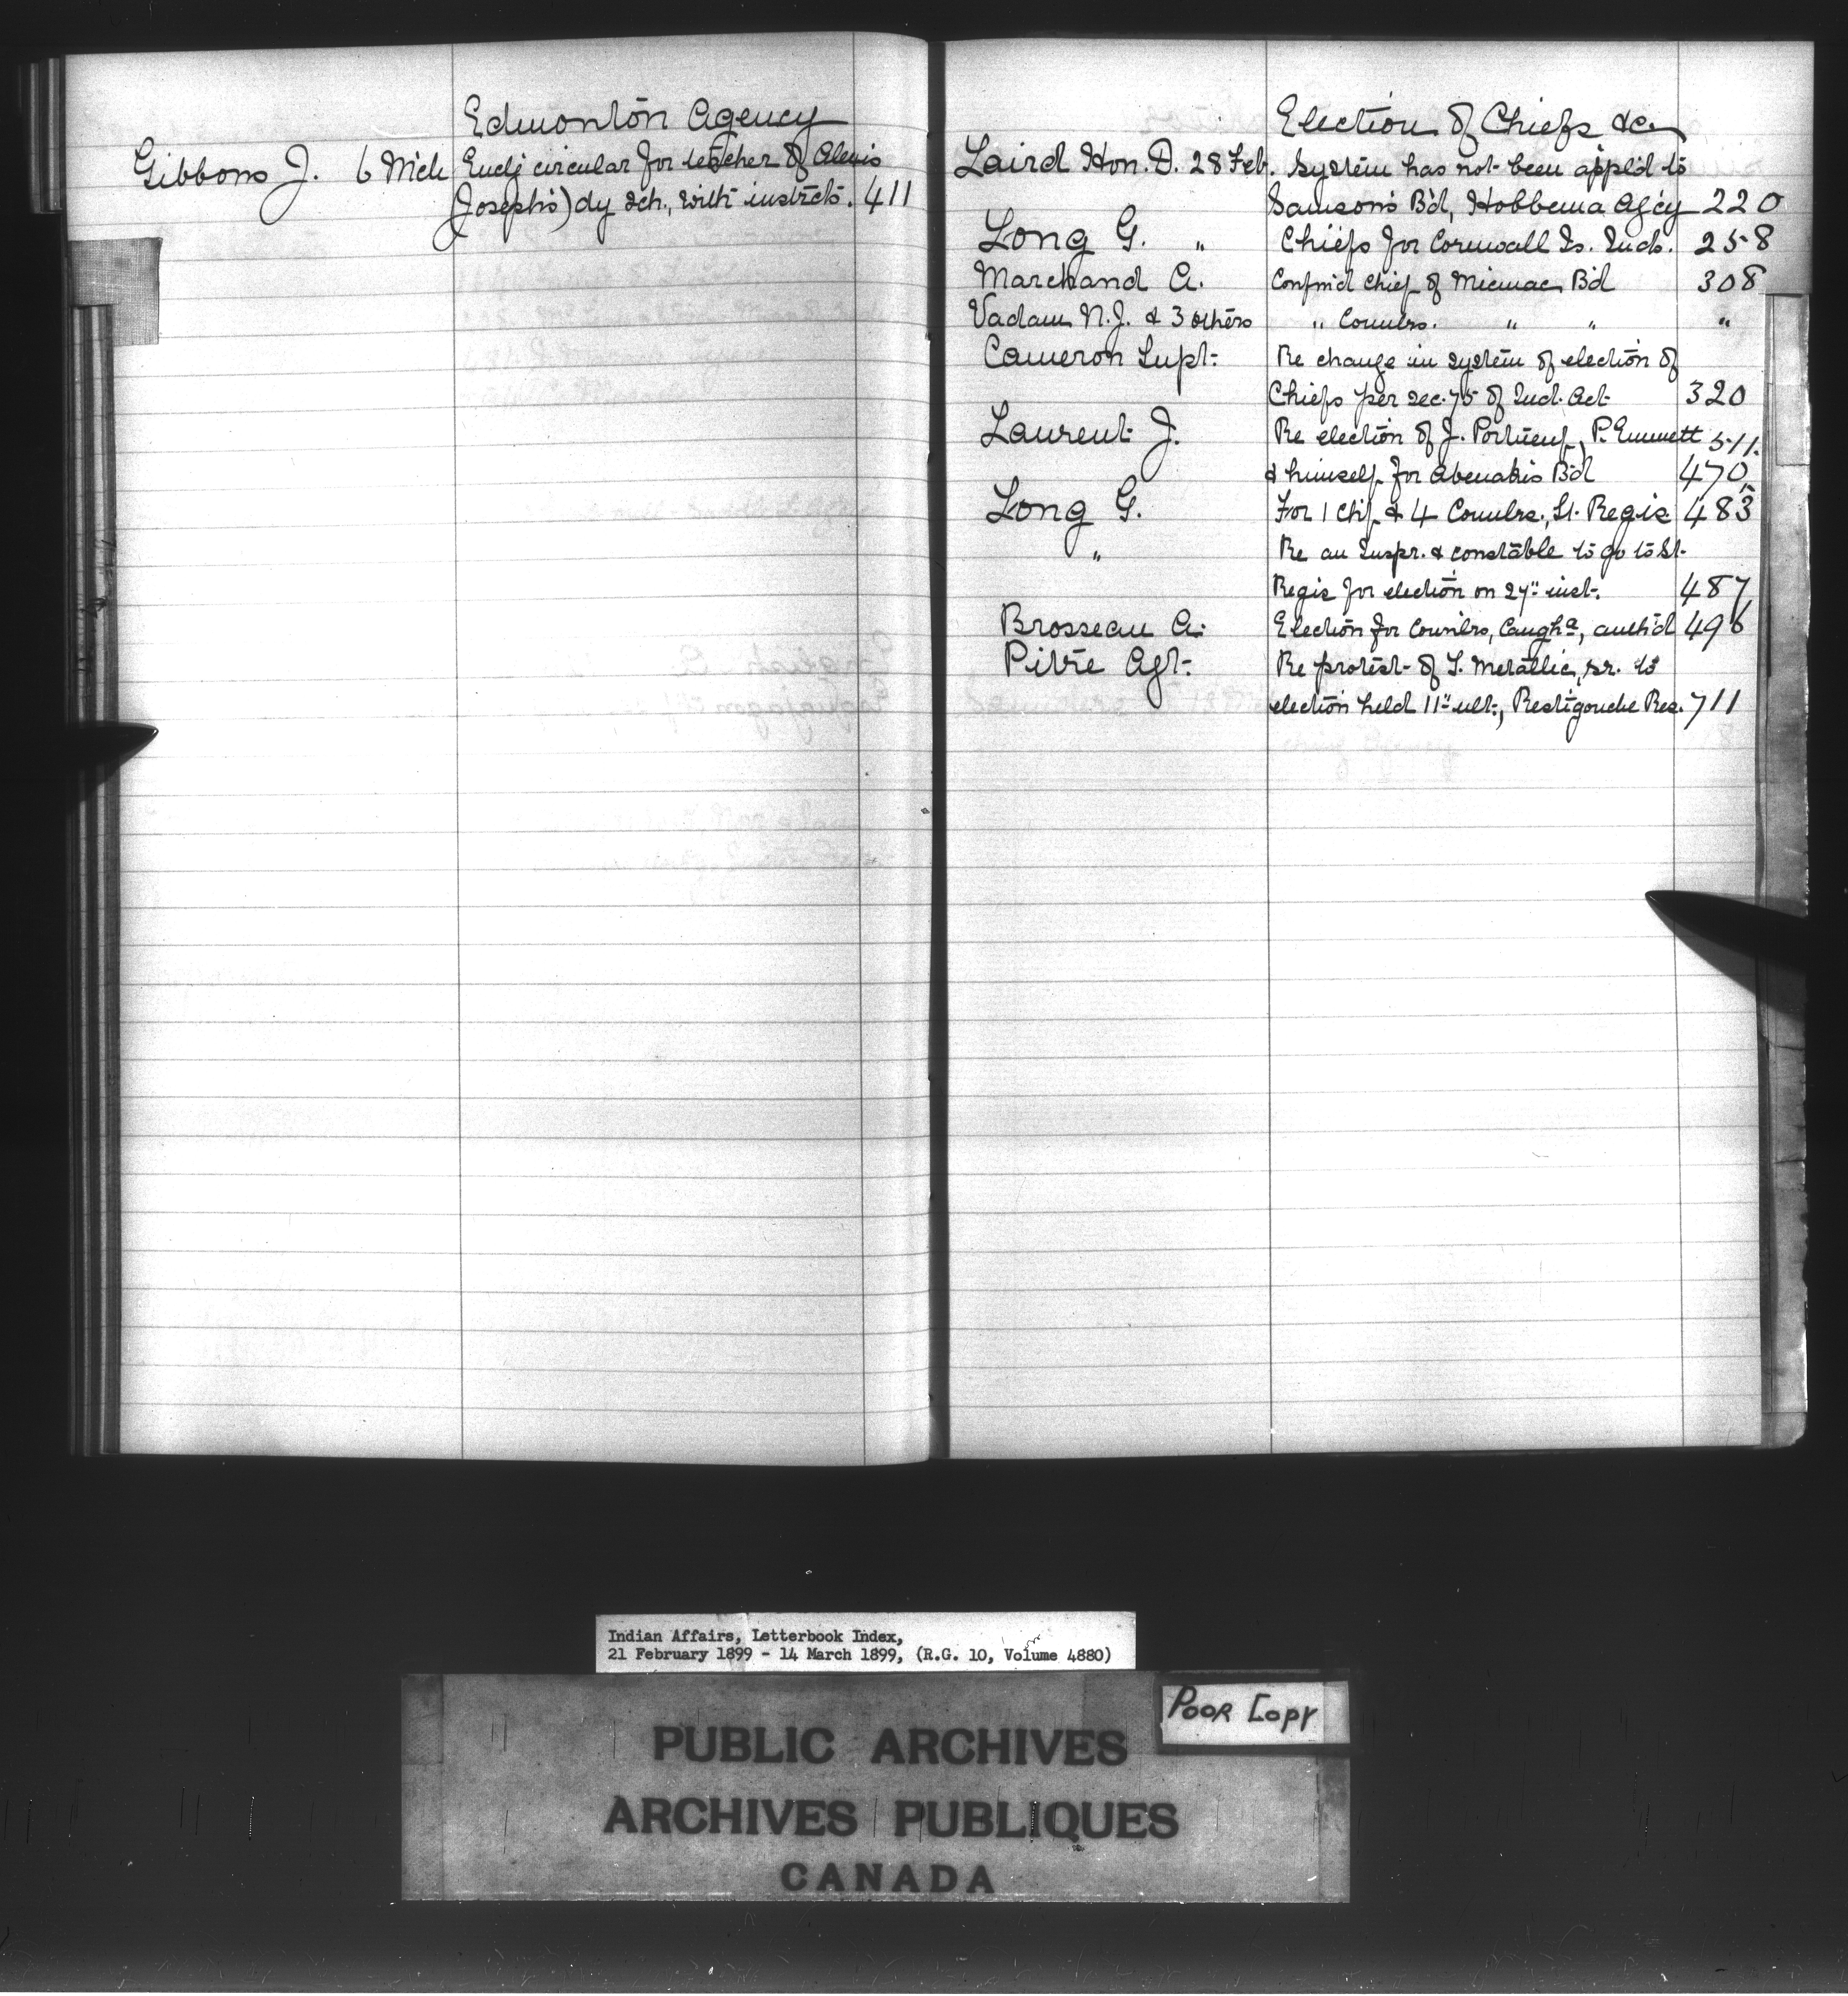 Edmonton Agency
Gibbons J. 6 Mch Encl'g circular for teacher of Alexis
(Joseph's) dy sch., with instrcts. 411
Election of Chiefs &c.
Laird Hon. D. 28 Feb. System has not been appl'd to
Samson's B'd, Hobbema Ag'cy 220
Long G. " Chiefs for Cornwall Is. Inds. 258
Marchand A. Confm'd Chief of Micmac B'd 308
Vadam N.J. & 3 others " Counlrs. " " "
Cameron Supt. Re change in system of election of
Chiefs per sec. 75 of Ind. Act 320
Laurent J. Re election of J. Portneuf, P. Emmett 511.
& himself for Abenakis B'd 470,
Long G. For 1 Chf. & 4 Counlrs., St. Regis 483
" Re an Inspr. & constable to go to St.
Regis for election on 27" inst. 487
Brosseau A. Election for Counlrs, Caugha, auth'd 496
Pitre Agt. Re protest of T. Metallic, sr. to
election held 11" ult., Restigouche Res. 711
Indian Affairs, Letterbook Index,
21 February 1899 - 14 March 1899, (R.G. 10, Volume 4880)
POOR COPY
PUBLIC ARCHIVES
ARCHIVES PUBLIQUES
CANADA